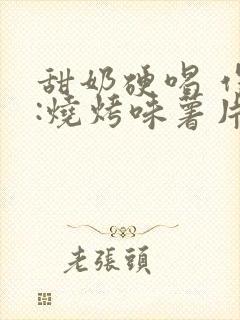 甜奶硬唱
:燒烤味薯片
老張頭